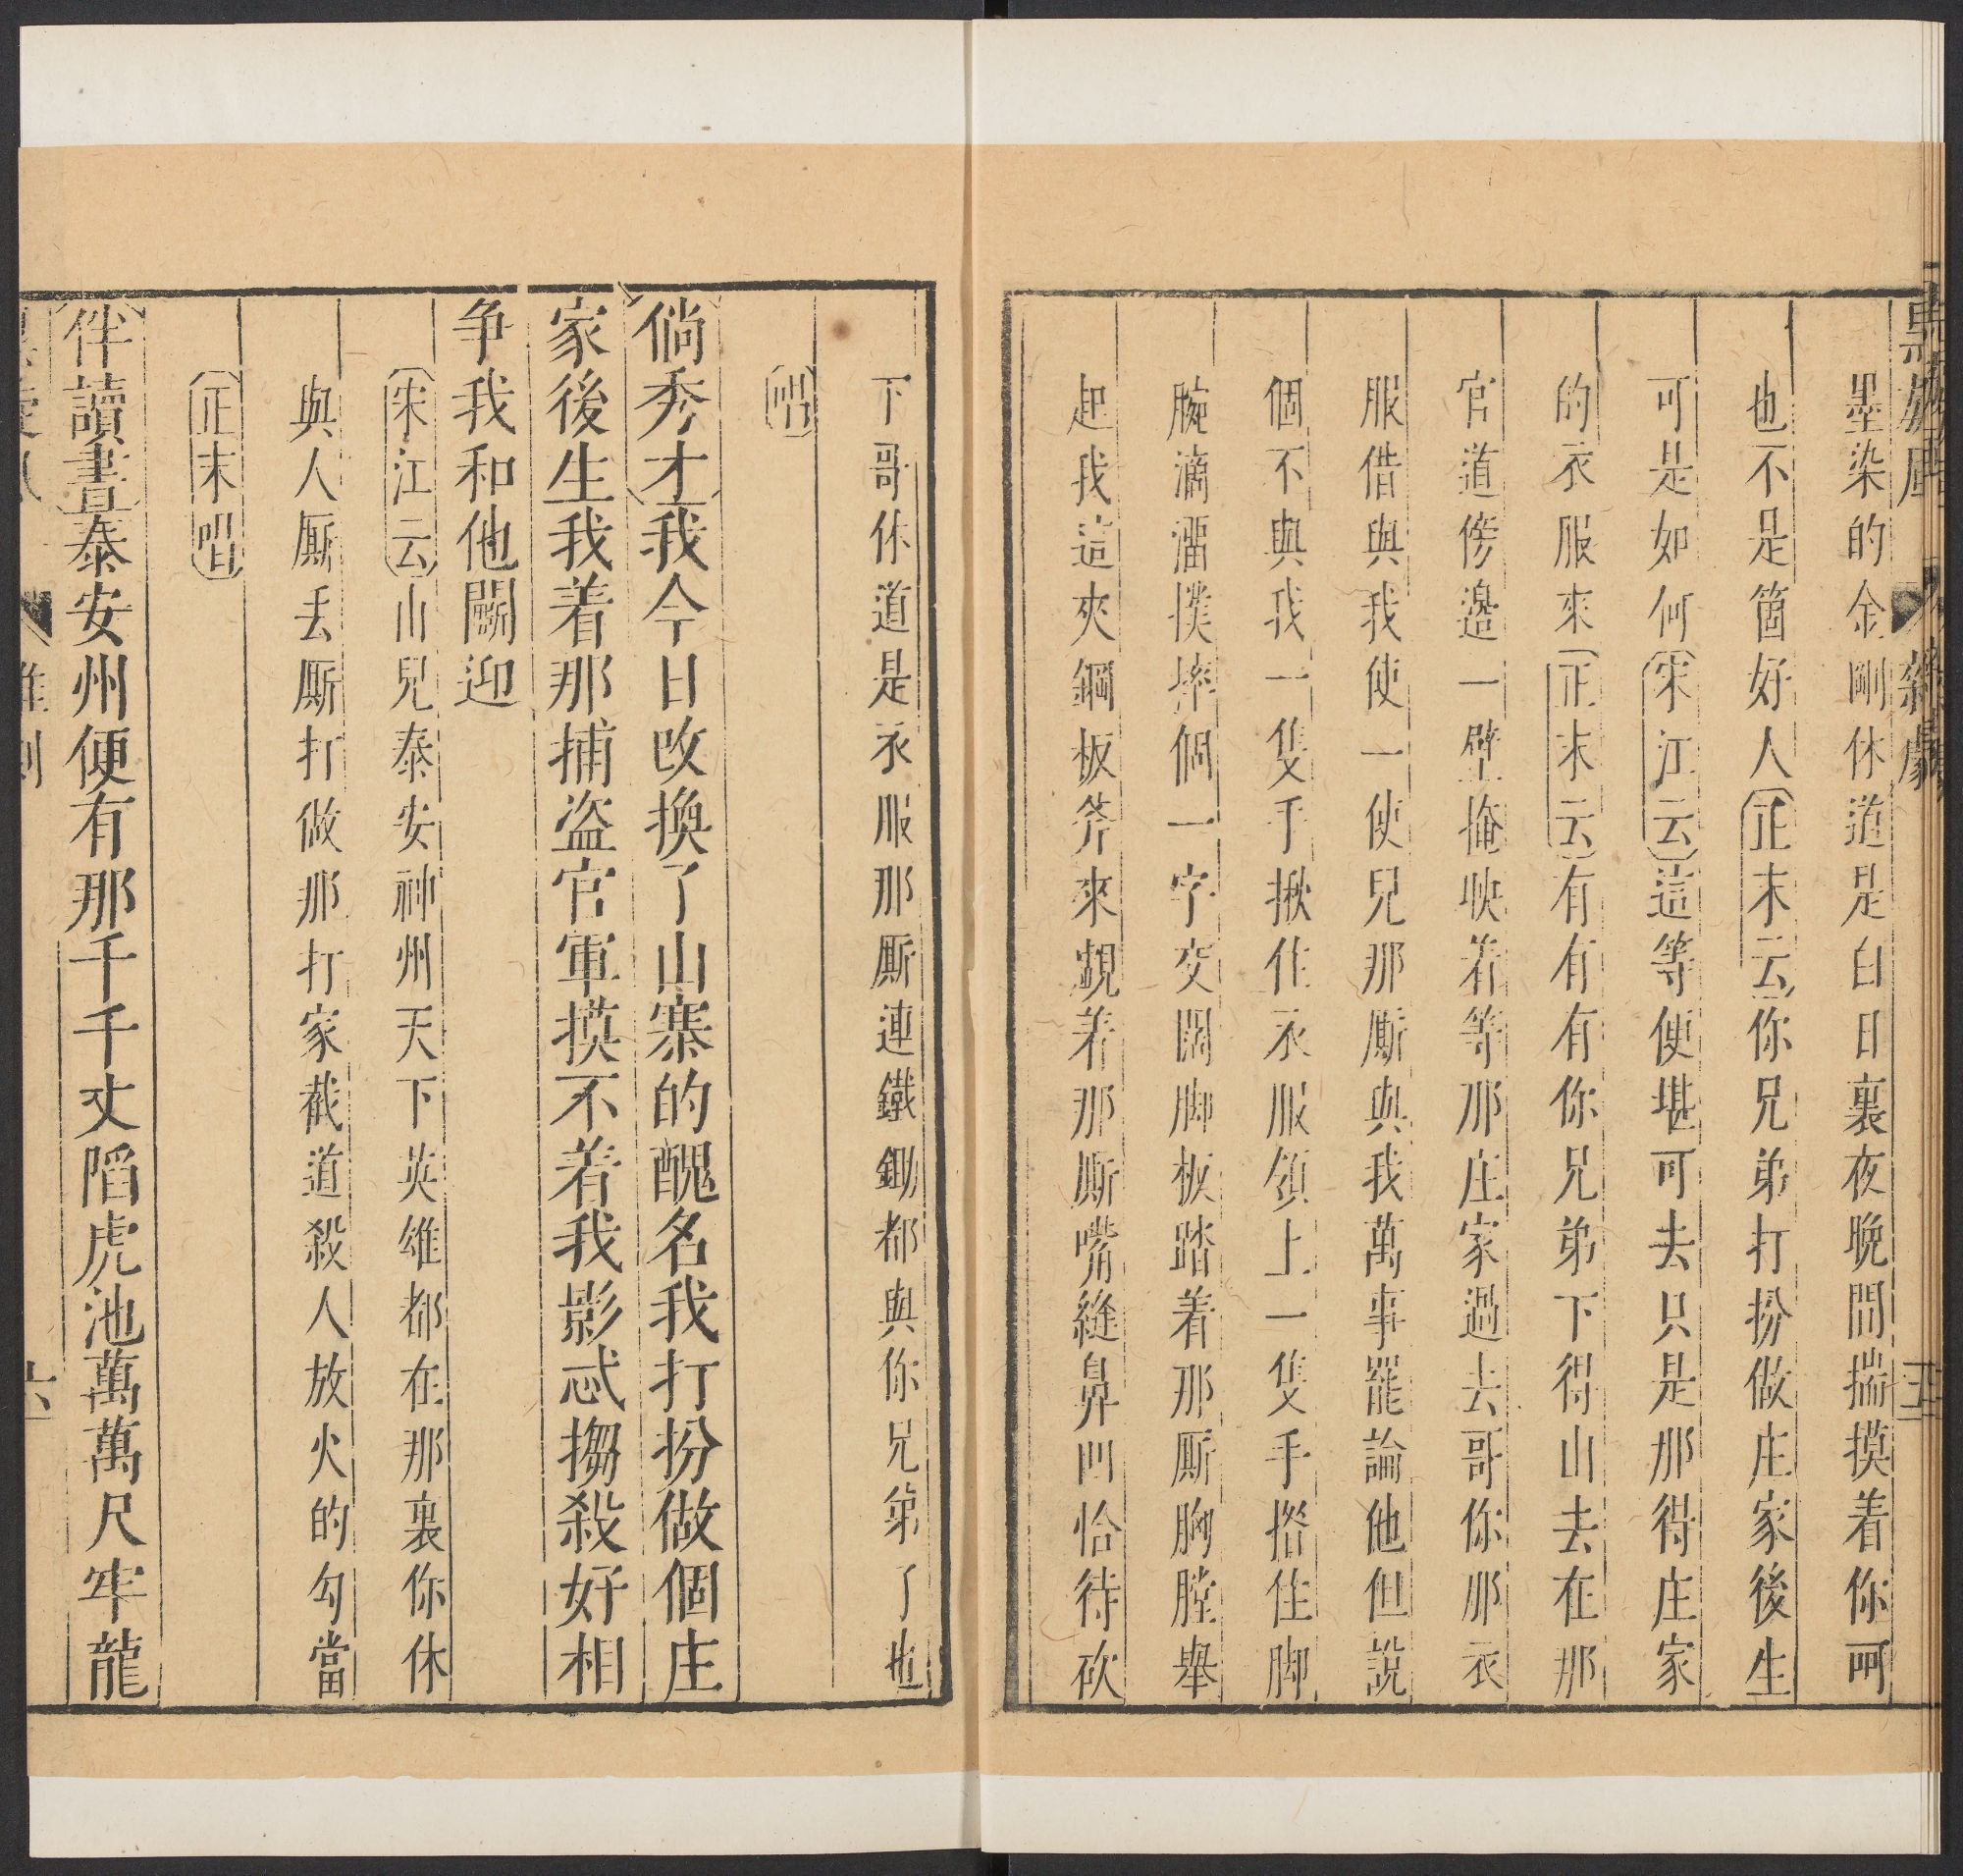 墨染的金剛休道是白日裏夜晚間揣摸着你呵
也不是箇好人正末云你兄弟打扮做庄家後生
可是如何宋江云這等便堪可去只是那得庄家
的衣服來正末云有有有你兄弟下得山去在那
官道傍邊一壁掩映着等那庄家過去哥你那衣
服借與我使一使兒那厮與我萬事罷論他但說
個不與我一隻手揪住衣服領上一隻手揝住脚
腕滴㽞撲摔個一字交闊脚板踏着那厮胸膛舉
起我這夾鋼板斧來覷着那厮嘴縫鼻凹恰待砍
下哥休道是衣服那厮連鐵鋤都與你兄弟了也
唱
倘秀才我今日改換了山寨的醜名我打扮做個庄
家後生我着那捕盗官軍摸不着我影忒搊殺好相
争我和他鬭迎
宋江云山兒泰安神州天下英雄都在那裏你休
與人厮丢厮打做那打家截道殺人放火的勾當
正末唱
伴讀書泰安州便有那千千丈陷虎池萬萬尺牢龍
六